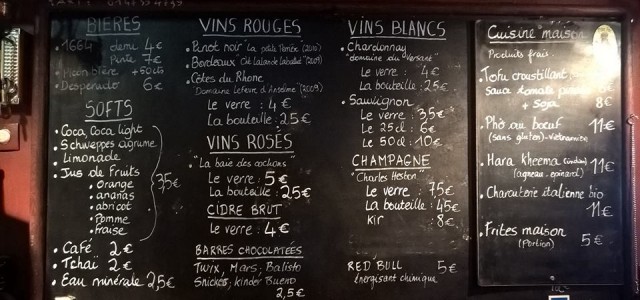 BIERES
• 1664 demi 4€
Pinte 7€
• Picon bière +50cts
• Desperado 6€
SOFTS
• Coca, Coca light
• Schweppes agrume
• Limonade
• Jus de Fruits
• Orange
• ananas
• abricot
• Pomme
• fraise
3,5€
• Café 2€
• Tchaï 2€
• Eau minérale 2,5€
VINS ROUGES
• Pinot noir "La petite Perrière" (2010)
• Bordeaux "Cht Lalande Labatut" (2009)
• Côtes du Rhone
"Domaine Lefevre d'Anselme" (2009)
Le verre : 4€
La bouteille : 25€
VINS ROSÉS
• "La baie des cochons"
Le verre : 5€
La bouteille : 25€
CIDRE BRUT
Le verre : 4€
BARRES CHOCOLATÉES
TWIX, Mars, Balisto
Snickes, Kinder Bueno
2,5€
VINS BLANCS
• Chardonnay
"Domaine du Versant"
Le verre : 4€
La bouteille : 25€
• Sauvignon
Le verre : 3,5€
Le 25cl : 6€
Le 50cl : 10€
CHAMPAGNE
"Charles Heston"
Le verre : 7,5€
La bouteille : 45€
Kir : 8€
RED BULL 5€
énergisant chimique
Cuisine maison
Produits frais
• Tofu croustillant
Sauce tomate
+ Soja 8€
• Phò au boeuf 11€
(sans gluten) - vietnamienne
• Hara kheema (indien) 11€
(agneau - épinard)
• Charcuterie italienne bio
11€
• Frites maison
(Portion) 5€